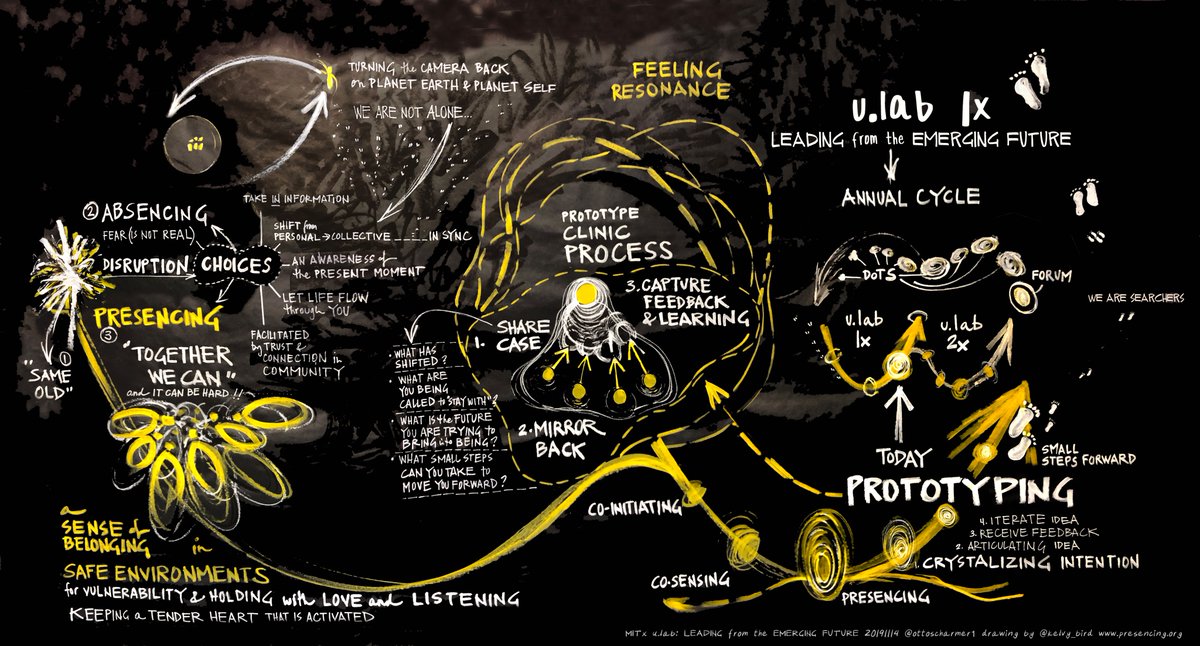 TURNING the CAMERA BACK
on PLANET EARTH & PLANET SELF
WE ARE NOT ALONE...
FEELING
RESONANCE
u.lab 1x
LEADING from the EMERGING FUTURE
ANNUAL CYCLE
② ABSENCING
FEAR (IS NOT REAL)
DISRUPTION
CHOICES
TAKE IN INFORMATION
SHIFT from
PERSONAL → COLLECTIVE ___:___ IN SYNC
AN AWARENESS of
the PRESENT MOMENT
LET LIFE FLOW
through YOU
FACILITATED
by TRUST &
CONNECTION in
COMMUNITY
PRESENCING
③
"TOGETHER
WE CAN"
and IT CAN BE HARD !!
①
"SAME
OLD"
a
SENSE of
BELONGING in
SAFE ENVIRONMENTS
for VULNERABILITY & HOLDING with LOVE and LISTENING
KEEPING a TENDER HEART THAT IS ACTIVATED
PROTOTYPE
CLINIC
PROCESS
1. SHARE
CASE
3. CAPTURE
FEEDBACK
& LEARNING
2. MIRROR
BACK
• WHAT HAS
SHIFTED?
• WHAT ARE
YOU BEING
CALLED to "STAY WITH"?
• WHAT IS the FUTURE
YOU ARE TRYING to
BRING into BEING?
• WHAT SMALL STEPS
CAN YOU TAKE to
MOVE YOU FORWARD?
DOTS
FORUM
WE ARE SEARCHERS
u.lab
1x
u.lab
2x
TODAY
SMALL
STEPS FORWARD
PROTOTYPING
4. ITERATE IDEA
3. RECEIVE FEEDBACK
2. ARTICULATING IDEA
1. CRYSTALIZING INTENTION
CO-INITIATING
CO-SENSING
PRESENCING
MITx u.lab: LEADING from the EMERGING FUTURE 20191114 @ottoscharmer1 drawing by @kelvy_bird www.presencing.org